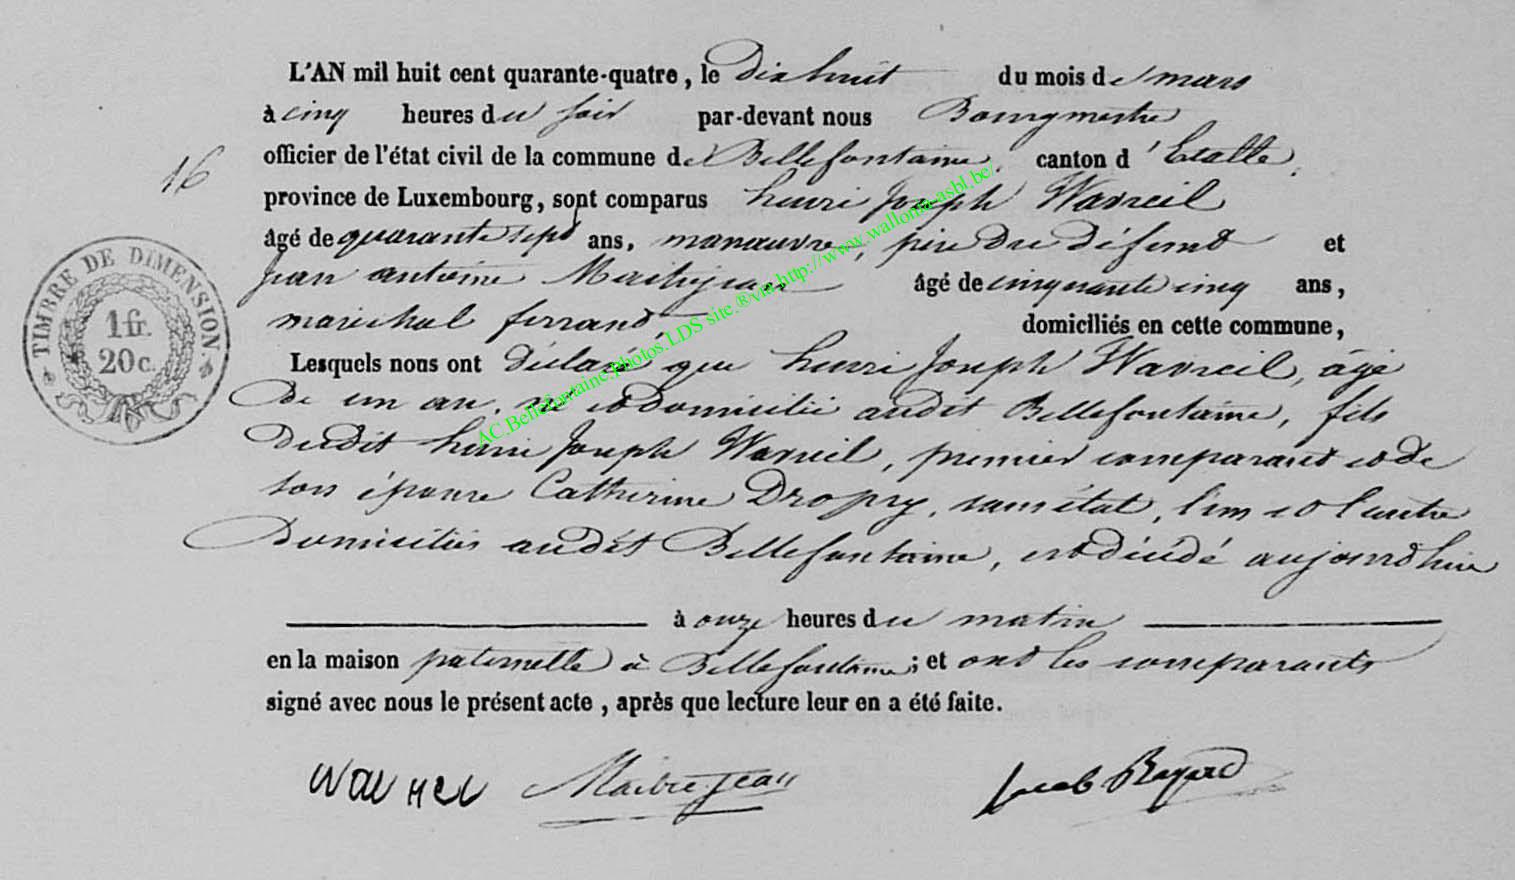 L'AN mil huit cent quarante-quatre, le dix huit du mois de mars
à cinq heures du soir par-devant nous Bourgmestre
officier de l'état civil de la commune de Bellefontaine, canton d'Etalle,
16
province de Luxembourg, sont comparus henri Joseph Wavreil
âgé de quarante sept ans, manœuvre, père du défunt et
Jean antoine Maitrejean âgé de cinquante cinq ans,
maréchal ferrant, domiciliés en cette commune,
Lesquels nous ont déclaré que henri Joseph Wavreil, âgé
de un an, né et domicilié audit Bellefontaine, fils
dudit henri Joseph Wavreil, premier comparant et de
son épouse Catherine Dropsy, sans état, l'un et l'autre
domiciliés audit Bellefontaine, est décédé aujourd'hui
à onze heures du matin
en la maison paternelle à Bellefontaine; et ont les comparants
signé avec nous le présent acte, après que lecture leur en a été faite.
Maitrejean Jacob Bayard
TIMBRE DE DIMENSION.
1 fr.
20 c.
AC.Bellefontaine.Photos.LDS site.®via.http://www.wallonia-asbl.be/